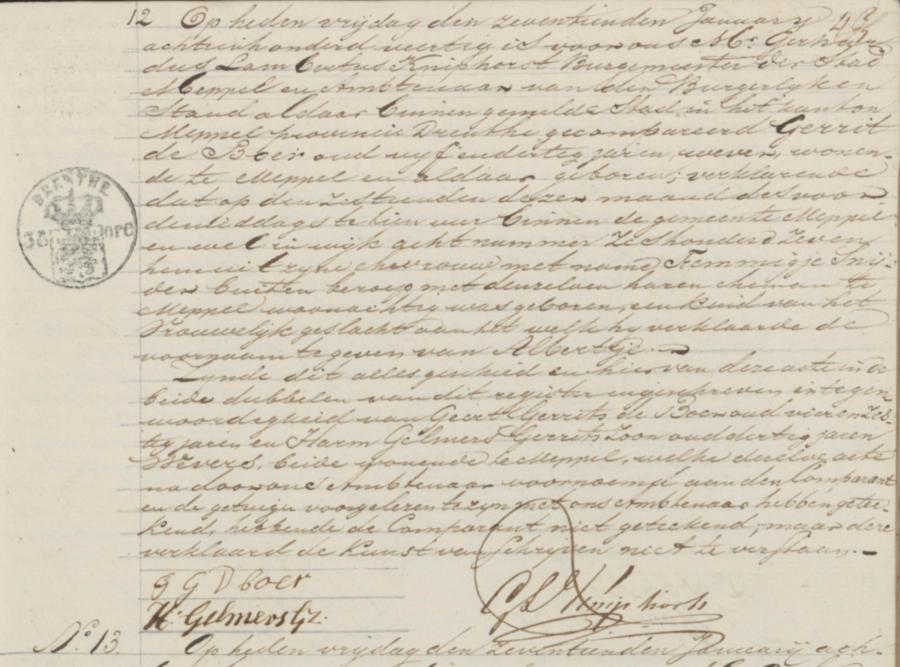 12 Op heden vrijdag den zeventienden January
achtienhonderd veertig is voor ons Mr. Gerhar
dus Lambertus Kniphorst Burgemeester der Stad
Meppel en Ambtenaar van den Burgerlyken
Stand aldaar binnen gemelde Stad, in het kanton
Meppel provincie Drenthe gecompareerd Gerrit
de Boer oud vyf en dertig jaren, wever, wonen-
de te Meppel en aldaar geboren; verklarende
dat op den zestienden dezer maand des voor
demiddags te tien uur binnen de gemeente Meppel
en wel in wijk acht nummer zeshonderd zeven
hem uit zyne ehevrouw met name Femmigje Snij-
der buiten beroep met denzelven haren eheman te
Meppel woonachtig was geboren, een kind van het
Vrouwelijk geslacht aan het welk hy verklaarde de
voornaam te geven van Albertje.
Zynde dit alles geschied en hier van deze acte in de
beide dubbelen van dit register ingeschreven in tegen
woordigheid van Geert Gerrits de Boer oud vier en zes-
tig jaren en Harm Gelmers Gerrits Zoon oud dertig jaren
Wevers, beide wonende te Meppel, welke dezelve acte
na door ons Ambtenaar voornoemd aan den Comparant
en de getuigen voorgelezen te zyn met ons Ambtenaar hebben getee-
kend, hebbende de Comparant niet geteekend, maar deze
verklaard de kunst van schrijven niet te verstaan.
DRENTHE
G G D boer
H. Gelmers Gz.
GL Kniphorst
No. 13. Op heden vrijdag den zeventienden Januarij ach-